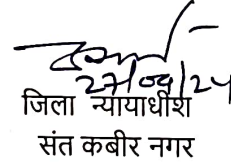 27/09/24
जिला न्यायाधीश
संत कबीर नगर